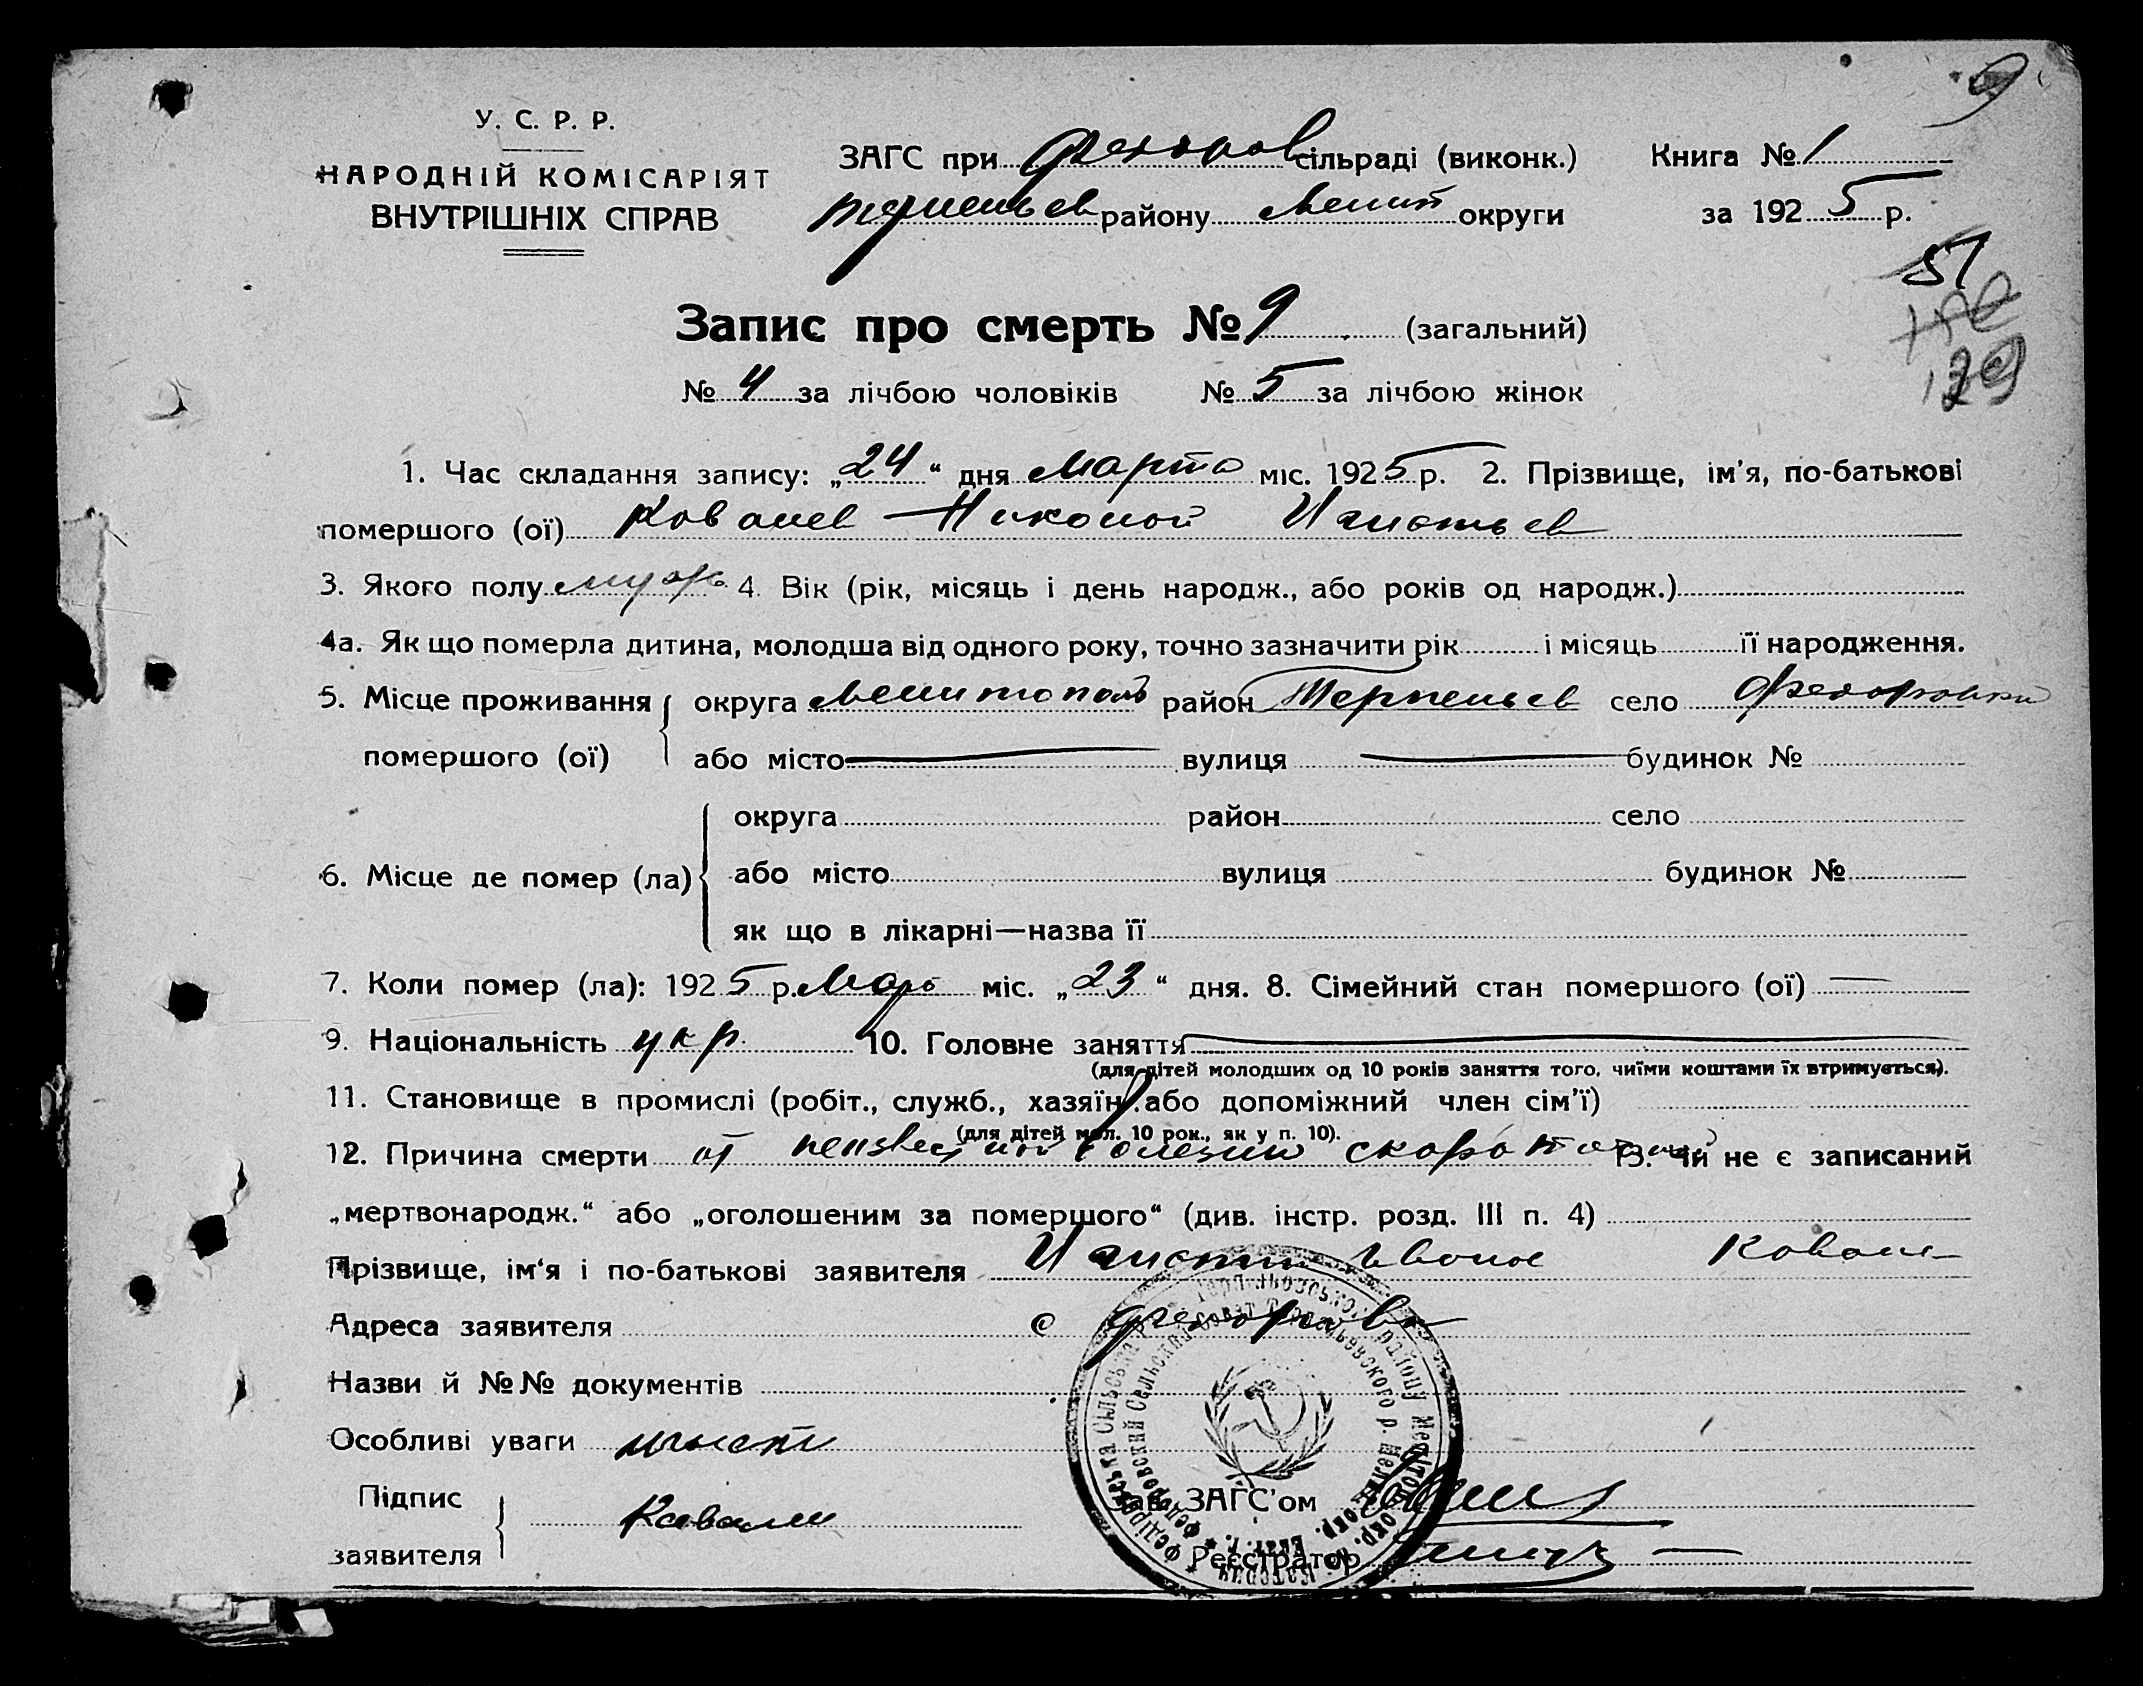 9
У. С. Р. Р.
НАРОДНІЙ КОМІСАРІЯТ
ВНУТРІШНІХ СПРАВ
ЗАГС при Федоров сільраді (виконк.) Книга № 1
району Мелит округи за 1925 р.
51
Запис про смерть № 9 (загальний)
№ 4 за лічбою чоловіків № 5 за лічбою жінок
129
1. Час складання запису: „24“ дня Марта міс. 1925 р. 2. Прізвище, ім'я, по-батькові
помершого (ої) Ковалев Николай
3. Якого полу муж. 4. Вік (рік, місяць і день народж., або років од народж.)
4а. Як що померла дитина, молодша від одного року, точно зазначити рік і місяць її народження.
5. Місце проживання помершого (ої) округа Мелитополь район Терпеньев село Федоровка
або місто вулиця будинок №
6. Місце де помер (ла) округа район село
або місто вулиця будинок №
як що в лікарні—назва її
7. Коли помер (ла): 1925 р. Мар міс. „23“ дня. 8. Сімейний стан помершого (ої) —
9. Національність укр. 10. Головне заняття
(для дітей молодших од 10 років заняття того, чиїми коштами їх втримується).
11. Становище в промислі (робіт., служб., хазяїн або допоміжний член сім'ї)
(для дітей мол. 10 рок., як у п. 10).
12. Причина смерти от неизвестной болезни 13. Чи не є записаний
„мертвонародж.“ або „оголошеним за помершого“ (див. інстр. розд. III п. 4)
Прізвище, ім'я і по-батькові заявителя Ковале
Адреса заявителя с Федоровка
Назви й №№ документів
Особливі уваги
Підпис заявителя Ковалев
Зав. ЗАГС'ом
Реєстратор